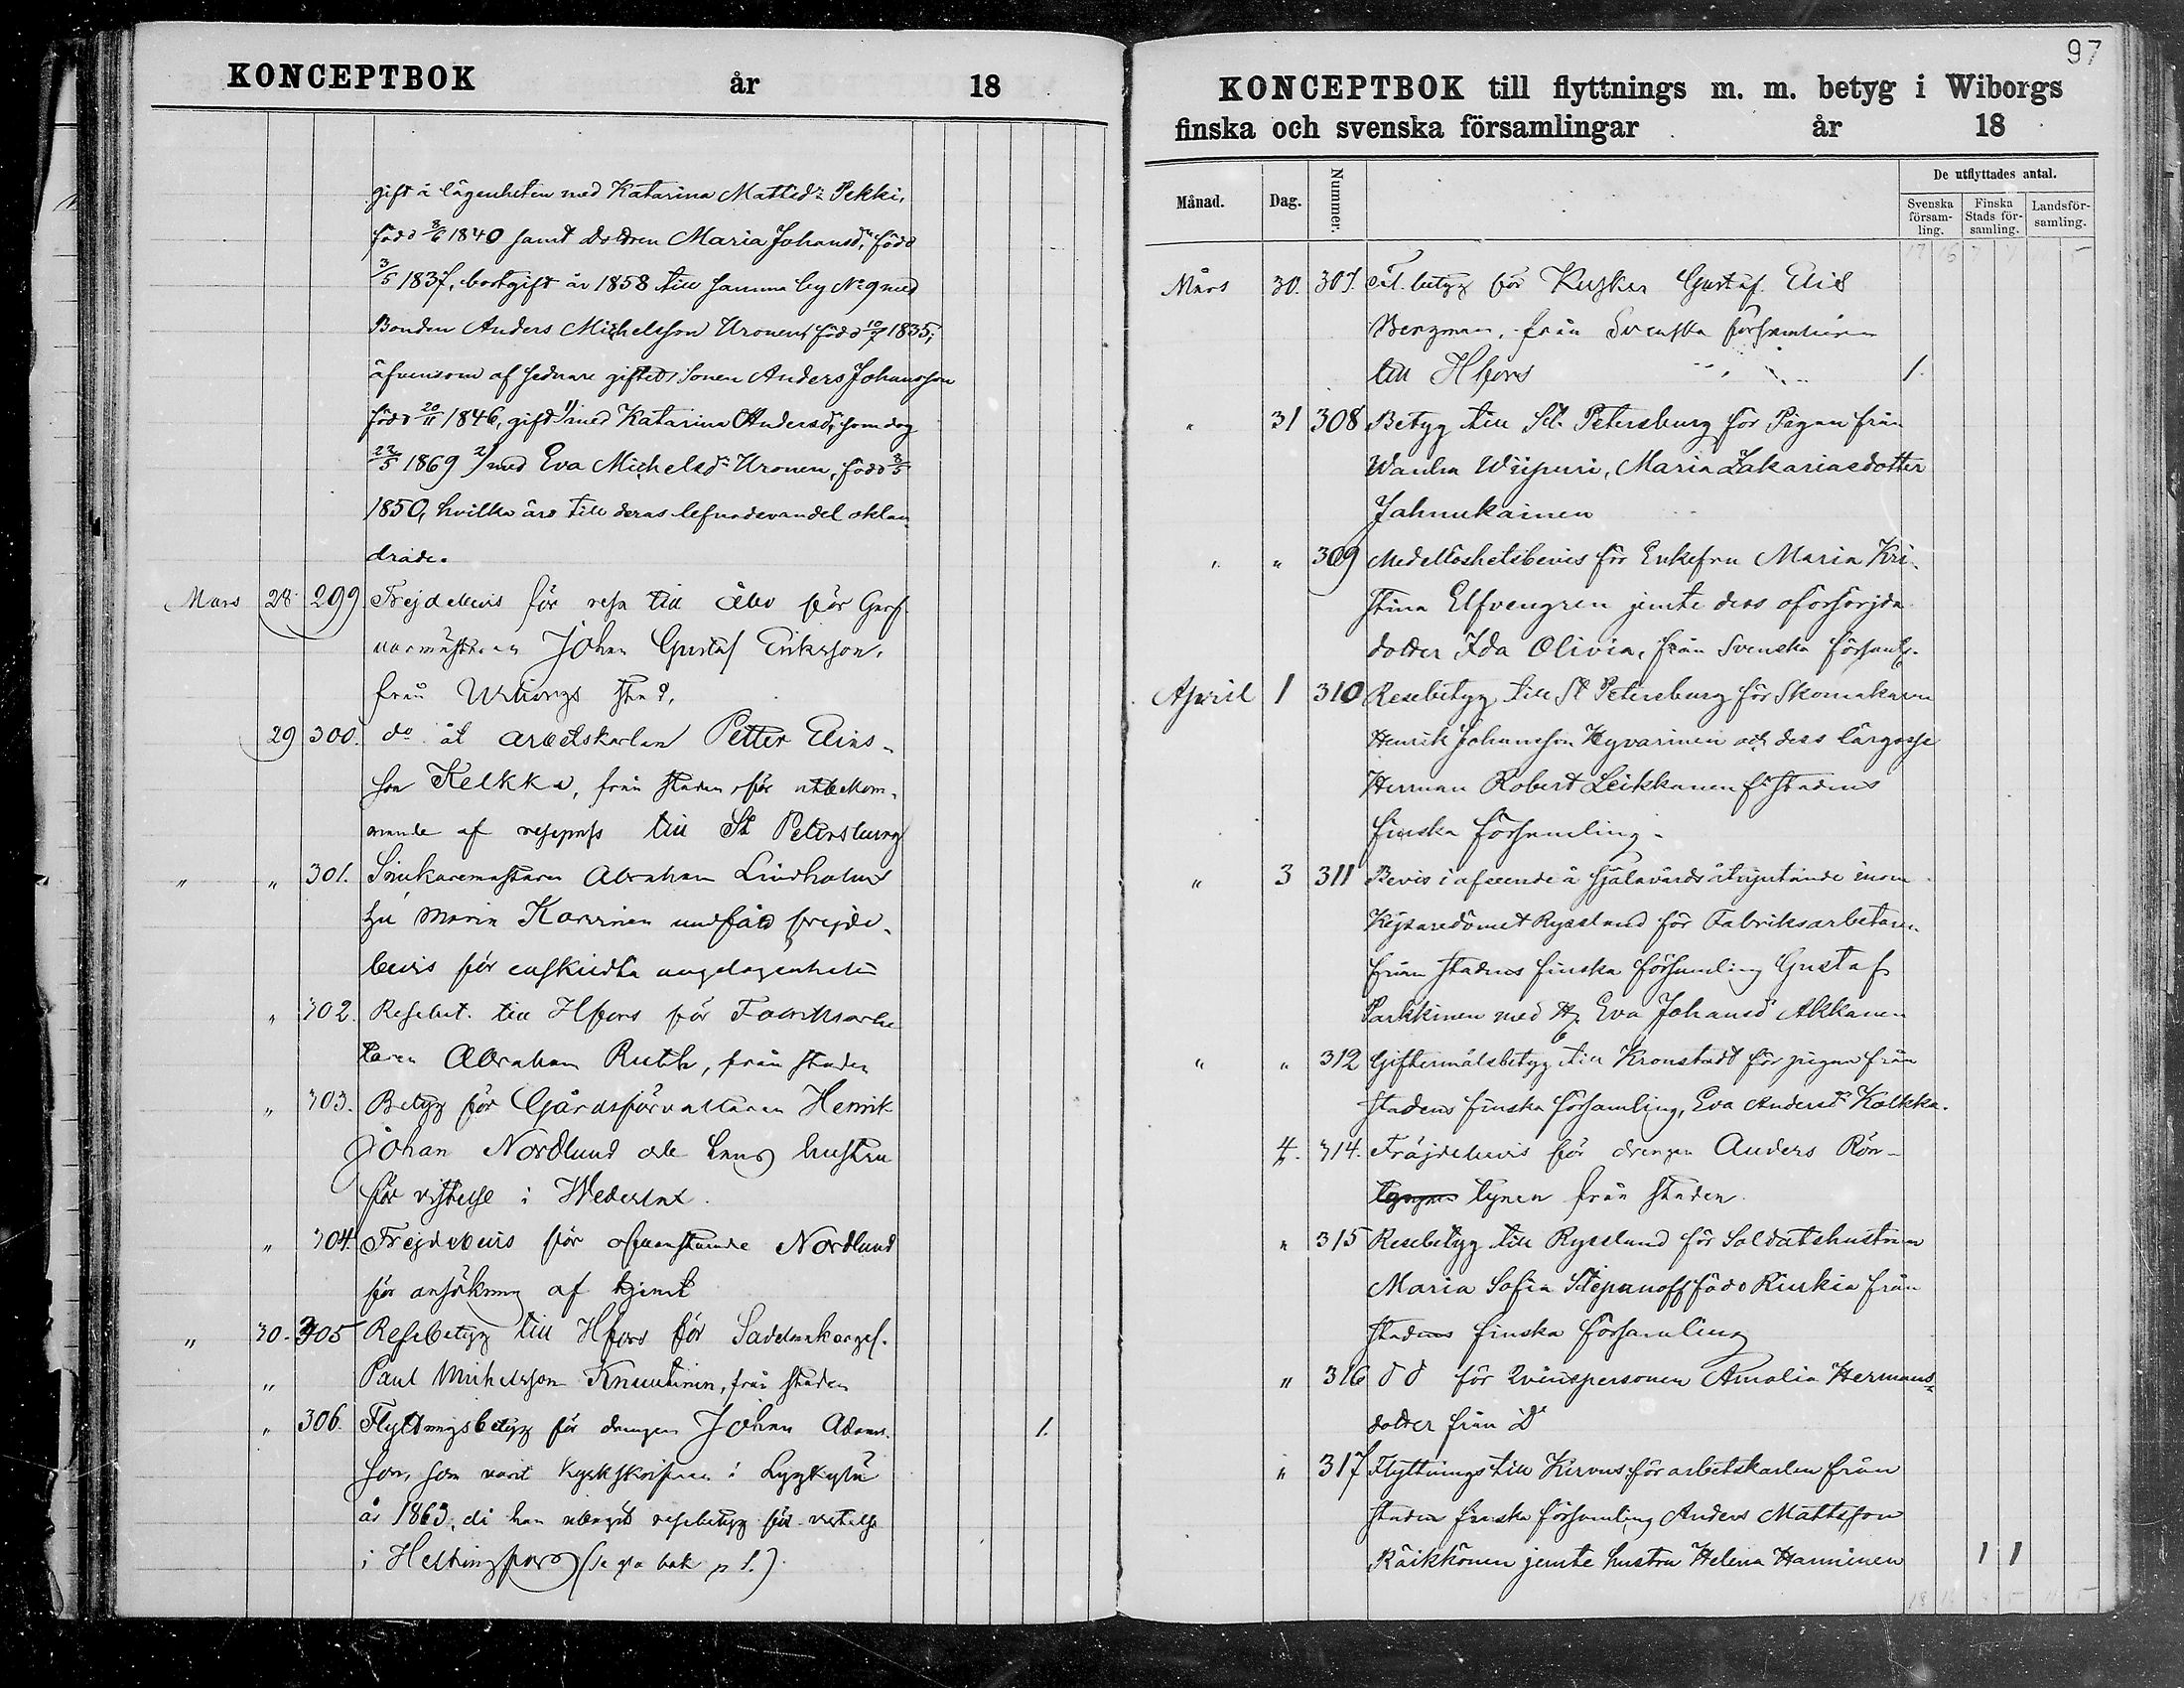 KONCEPTBOK år 18
gift å lägenheten med Katarina Mattsdr Pekki,
född 8/6 1840 samt dottren Maria Johansdr, född
3/5 1837, bortgift år 1858 till samma by No 9 med
Bonden Anders Michelsson Uronen, född 10/7 1835,
äfvensom af sednare giftet sonen Anders Johansson
född 20/11 1846, gift 1) med Katarina Andersdr, som dog
22/5 1869 2) med Eva Michelsdr Uronen, född 3/5
1850, hvilka äro till deras lefnadsvandel oklan
drade.
Mars 28 299 Frejdebevis för resa till Åbo för Garf
varmästaren Johan Gustaf Eriksson,
från Wiborgs stad.
29 300. do åt arbetskarlen Petter Elias-
son Kelkka, från staden för utbekom-
mande af resepass till St Petersburg
" " 301. Snickaremästaren Abraham Lindholms
hu Maria Karvinen undfår frejde-
bevis för enskildta angelägenheter
" 302. Resebet. till Hfors för Fabriksarbe
taren Abraham Ruth, från staden
" 303. Betyg för Gårdsförvaltaren Henrik
Johan Nordlund och hans hustru
för vistelse i Wederlax.
" 304. Frejdebevis för ofvanstående Nordlund
för ansökning af tjenst
" 30. 305 Resebetyg till Hfors för Sadelmakargef.
" Paul Michelsson Knuutinen, från staden
" 306. Flyttningsbetyg för drengen Johan Adams- 1.
son, som varit kyrkskrifven i Lyykylä
år 1863, då han uttagit resebetyg för vistelse
i Helsingfors (se gla bok p 1.)
97
KONCEPTBOK till flyttnings m. m. betyg i Wiborgs
finska och svenska församlingar år 18
Månad. Dag. Nummer. De utflyttades antal.
Svenska församling. Finska Stads församling. Landsförsamling.
Mars 30. 307. Fl. betyg för Kusken Gustaf Elis
Bergman, från Svenska församlingen
till Hfors 1.
" 31 308 Betyg till St. Petersburg för Pigan från
Wanha Wiipuri, Maria Zakariasdotter
Jahnukainen
" " 309 Medellöshetsbevis för Enkefru Maria Kri-
stina Elfvengren jemte dess oförsörjda
dotter Ida Olivia, från Svenska församlg.
April 1 310 Resebetyg till St Petersburg för Skomakaren
Henrik Johansson Hyvärinen och dess lärgosse
Herman Robert Leikkanen fr stadens
finska församling.
" 3 311 Bevis i afseende å själavårds åtnjutande inom
Kejsaredömet Ryssland för Fabriksarbetaren
från stadens finska församling Gustaf
Parkkinen med H. Eva Johansdr Akkanen
" " 312 Giftermålsbetyg till Kronstadt för pigan från
stadens finska församling, Eva Andersdr Kolkka.
4. 314. Fräjdebevis för drengen Anders Rön-
tynen från staden.
" 315 Resebetyg till Ryssland för Soldatshustrun
Maria Sofia Stepanoff född Kiurkia från
stadens finska församling
" 316 do do för Qvinspersonen Amalia Hermans-
dotter från do
" 317 Flyttnings till Kirvus för arbetskarlen från
stadens finska församling Anders Mattsson
Räikkönen jemte hustru Helena Hanninen 1 1